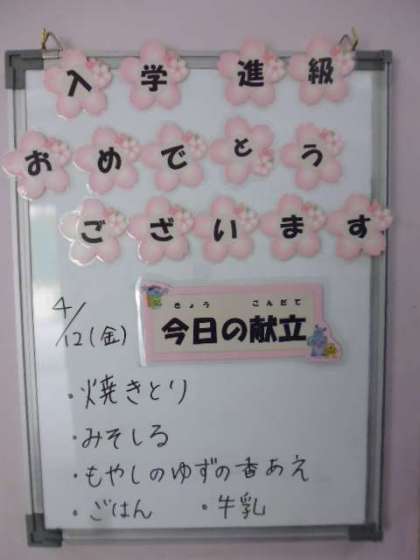 入学 進級
おめでとう
ございます
きょう こんだて
今日の献立
4/12(金)
・焼きとり
・みそしる
・もやしのゆずの香あえ
・ごはん ・牛乳